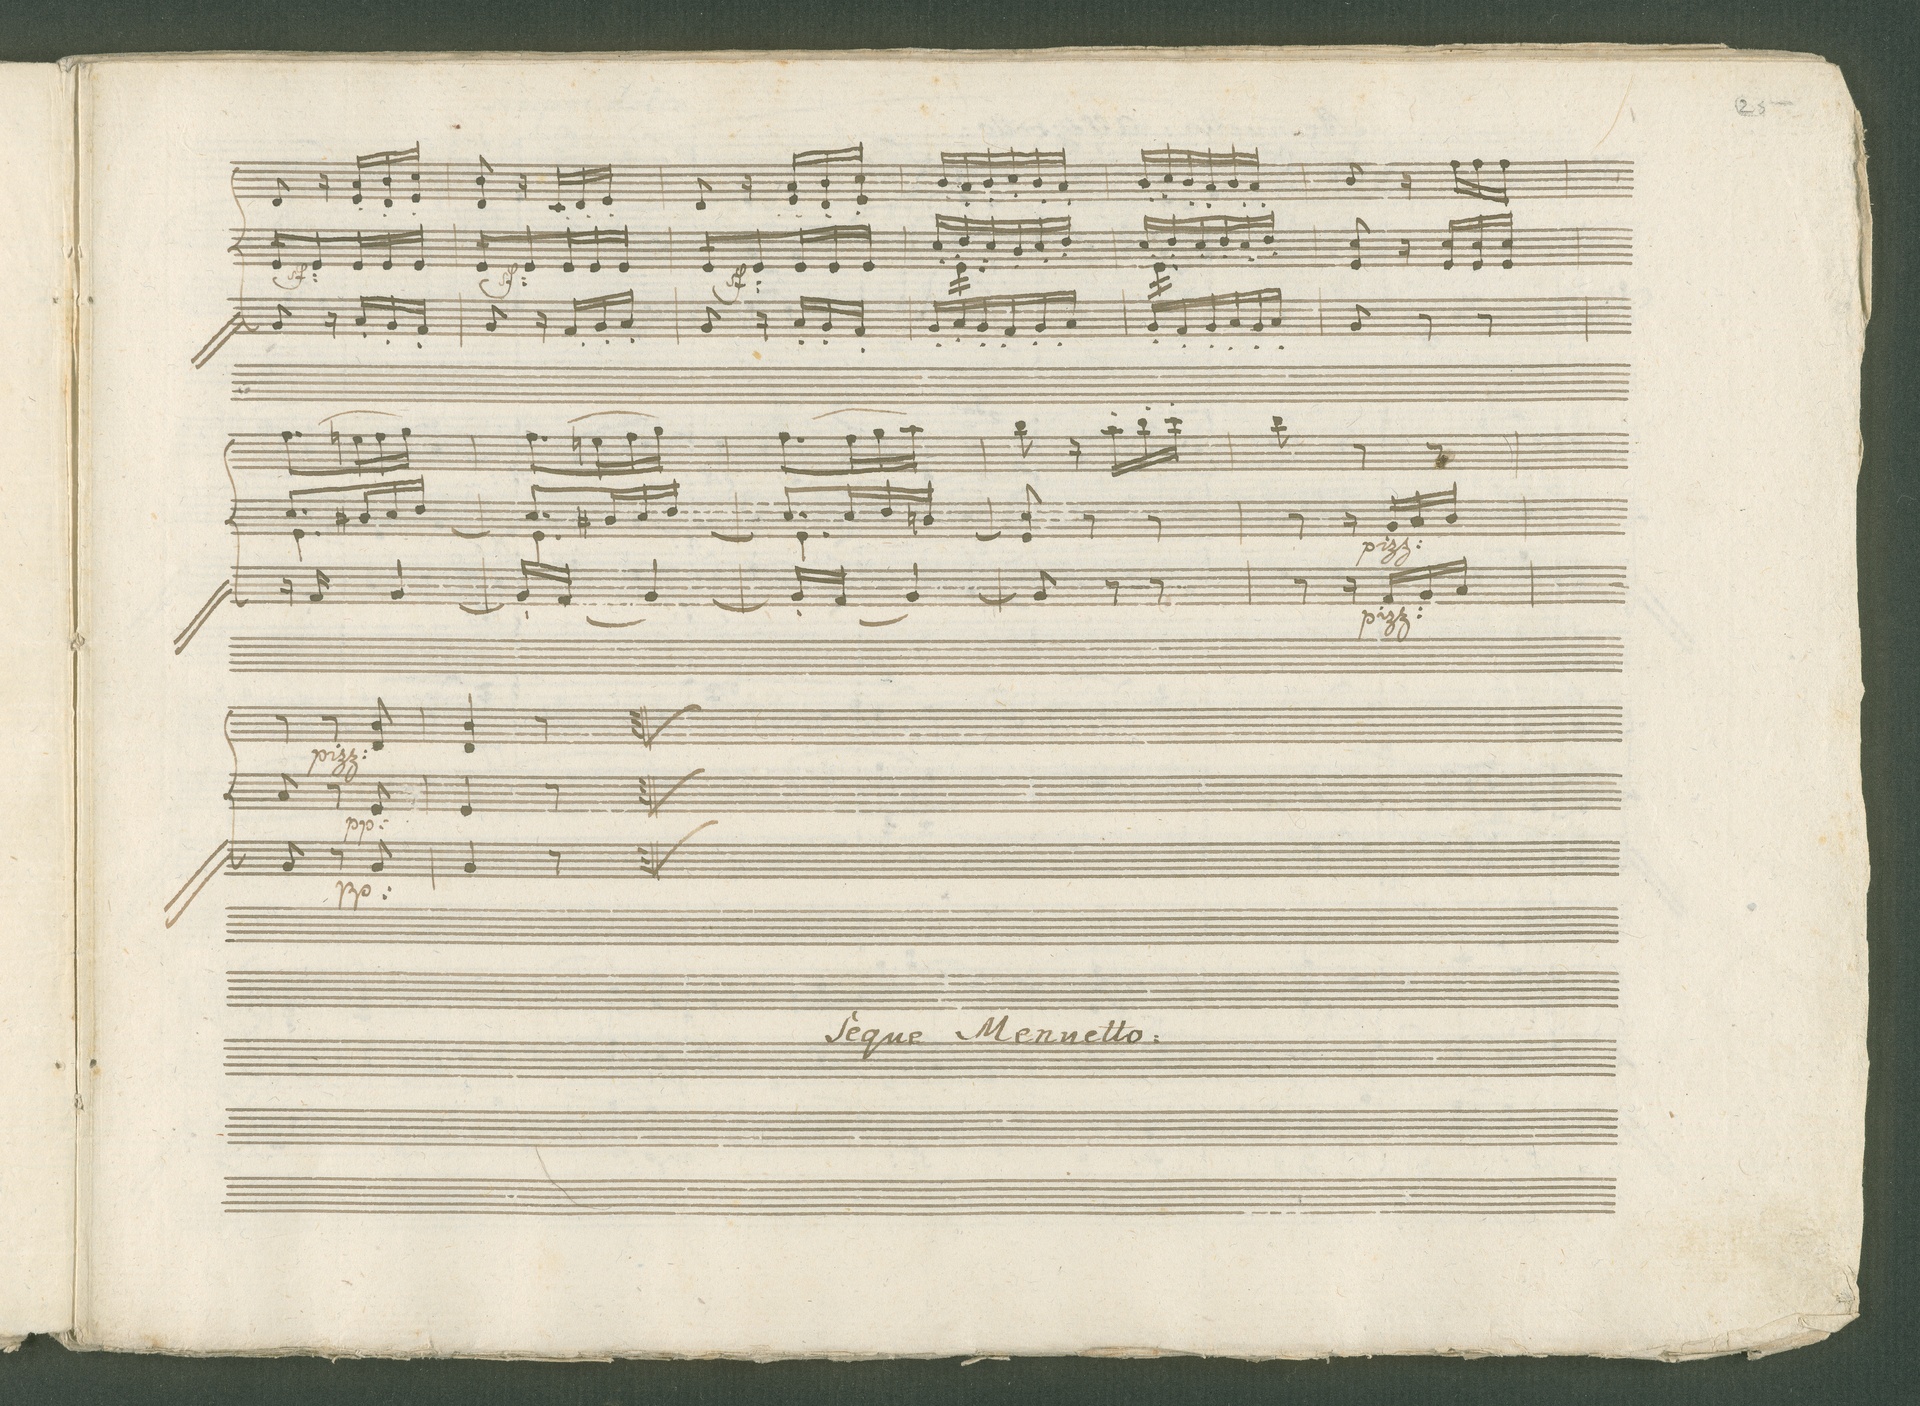 25
sf: sf: sf:
pizz:
pizz:
pizz:
pp:
pp:
Segue Mennetto: